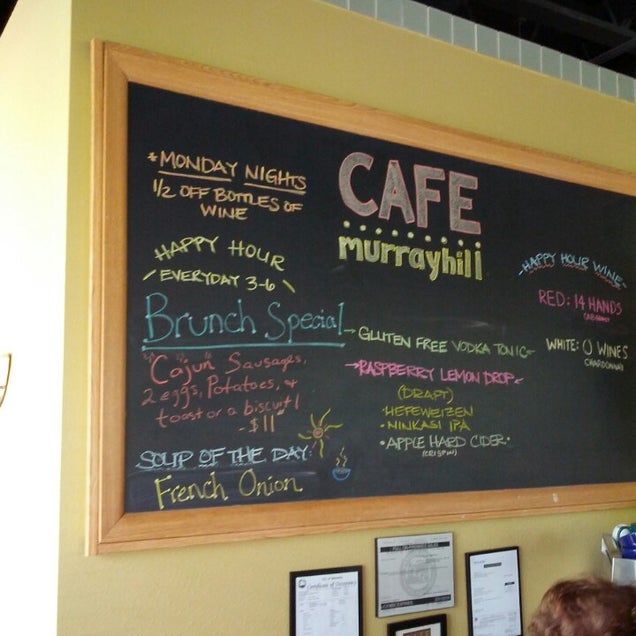 *MONDAY NIGHTS
1/2 OFF BOTTLES OF
WINE
HAPPY HOUR
EVERYDAY 3-6
Brunch Special
"Cajun" Sausages,
2 eggs, Potatoes, +
toast or a biscuit!
-$11
SOUP OF THE DAY:
French Onion
CAFE
murrayhill
GLUTEN FREE VODKA TONIC
RASPBERRY LEMON DROP
(DRAFT)
-HEFEWEIZEN
-NINKASI IPA
•APPLE HARD CIDER•
(CRISPIN)
-HAPPY HOUR WINE-
RED: 14 HANDS
WHITE: WINES
CHARDONNAY